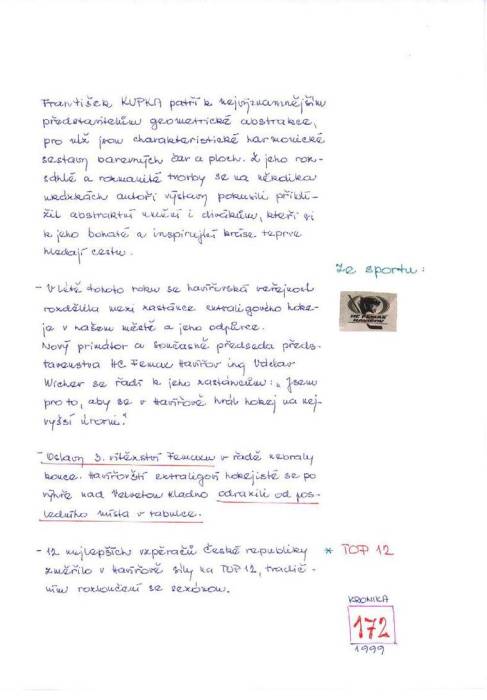 František KUPKA patří k nejvýznamnějším
představitelům geometrické abstrakce,
pro niž jsou charakteristické harmonické
sestavy barevných čar a ploch. Z jeho roz-
sáhlé a rozmanité tvorby se na několika
ukázkách autoři výstavy pokusili přiblí-
žit abstraktní umění i divákům, kteří si
k jeho bohaté a inspirující kráse teprve
hledají cestu.
Ze sportu:
- V létě tohoto roku se havířovská veřejnost
rozdělila mezi zastánce extraligového hoke-
je v našem městě a jeho odpůrce.
HC FEMAX
HAVÍŘOV
Nový primátor a současně předseda předs-
tavenstva HC Femax Havířov ing Václav
Wicher se řadí k jeho zastáncům: „Jsem
pro to, aby se v Havířově hrál hokej na nej-
vyšší úrovni."
- Oslavy 3. vítězství Femaxu v řadě nebraly
konce. Havířovští extraligoví hokejisté se po
výhře nad Velvetou Kladno odrazili od pos-
ledního místa v tabulce.
- 12 nejlepších vzpěračů České republiky
* TOP 12
změřilo v Havířově síly na TOP 12, tradič-
ním rozloučení se sezónou.
KRONIKA
172
1999